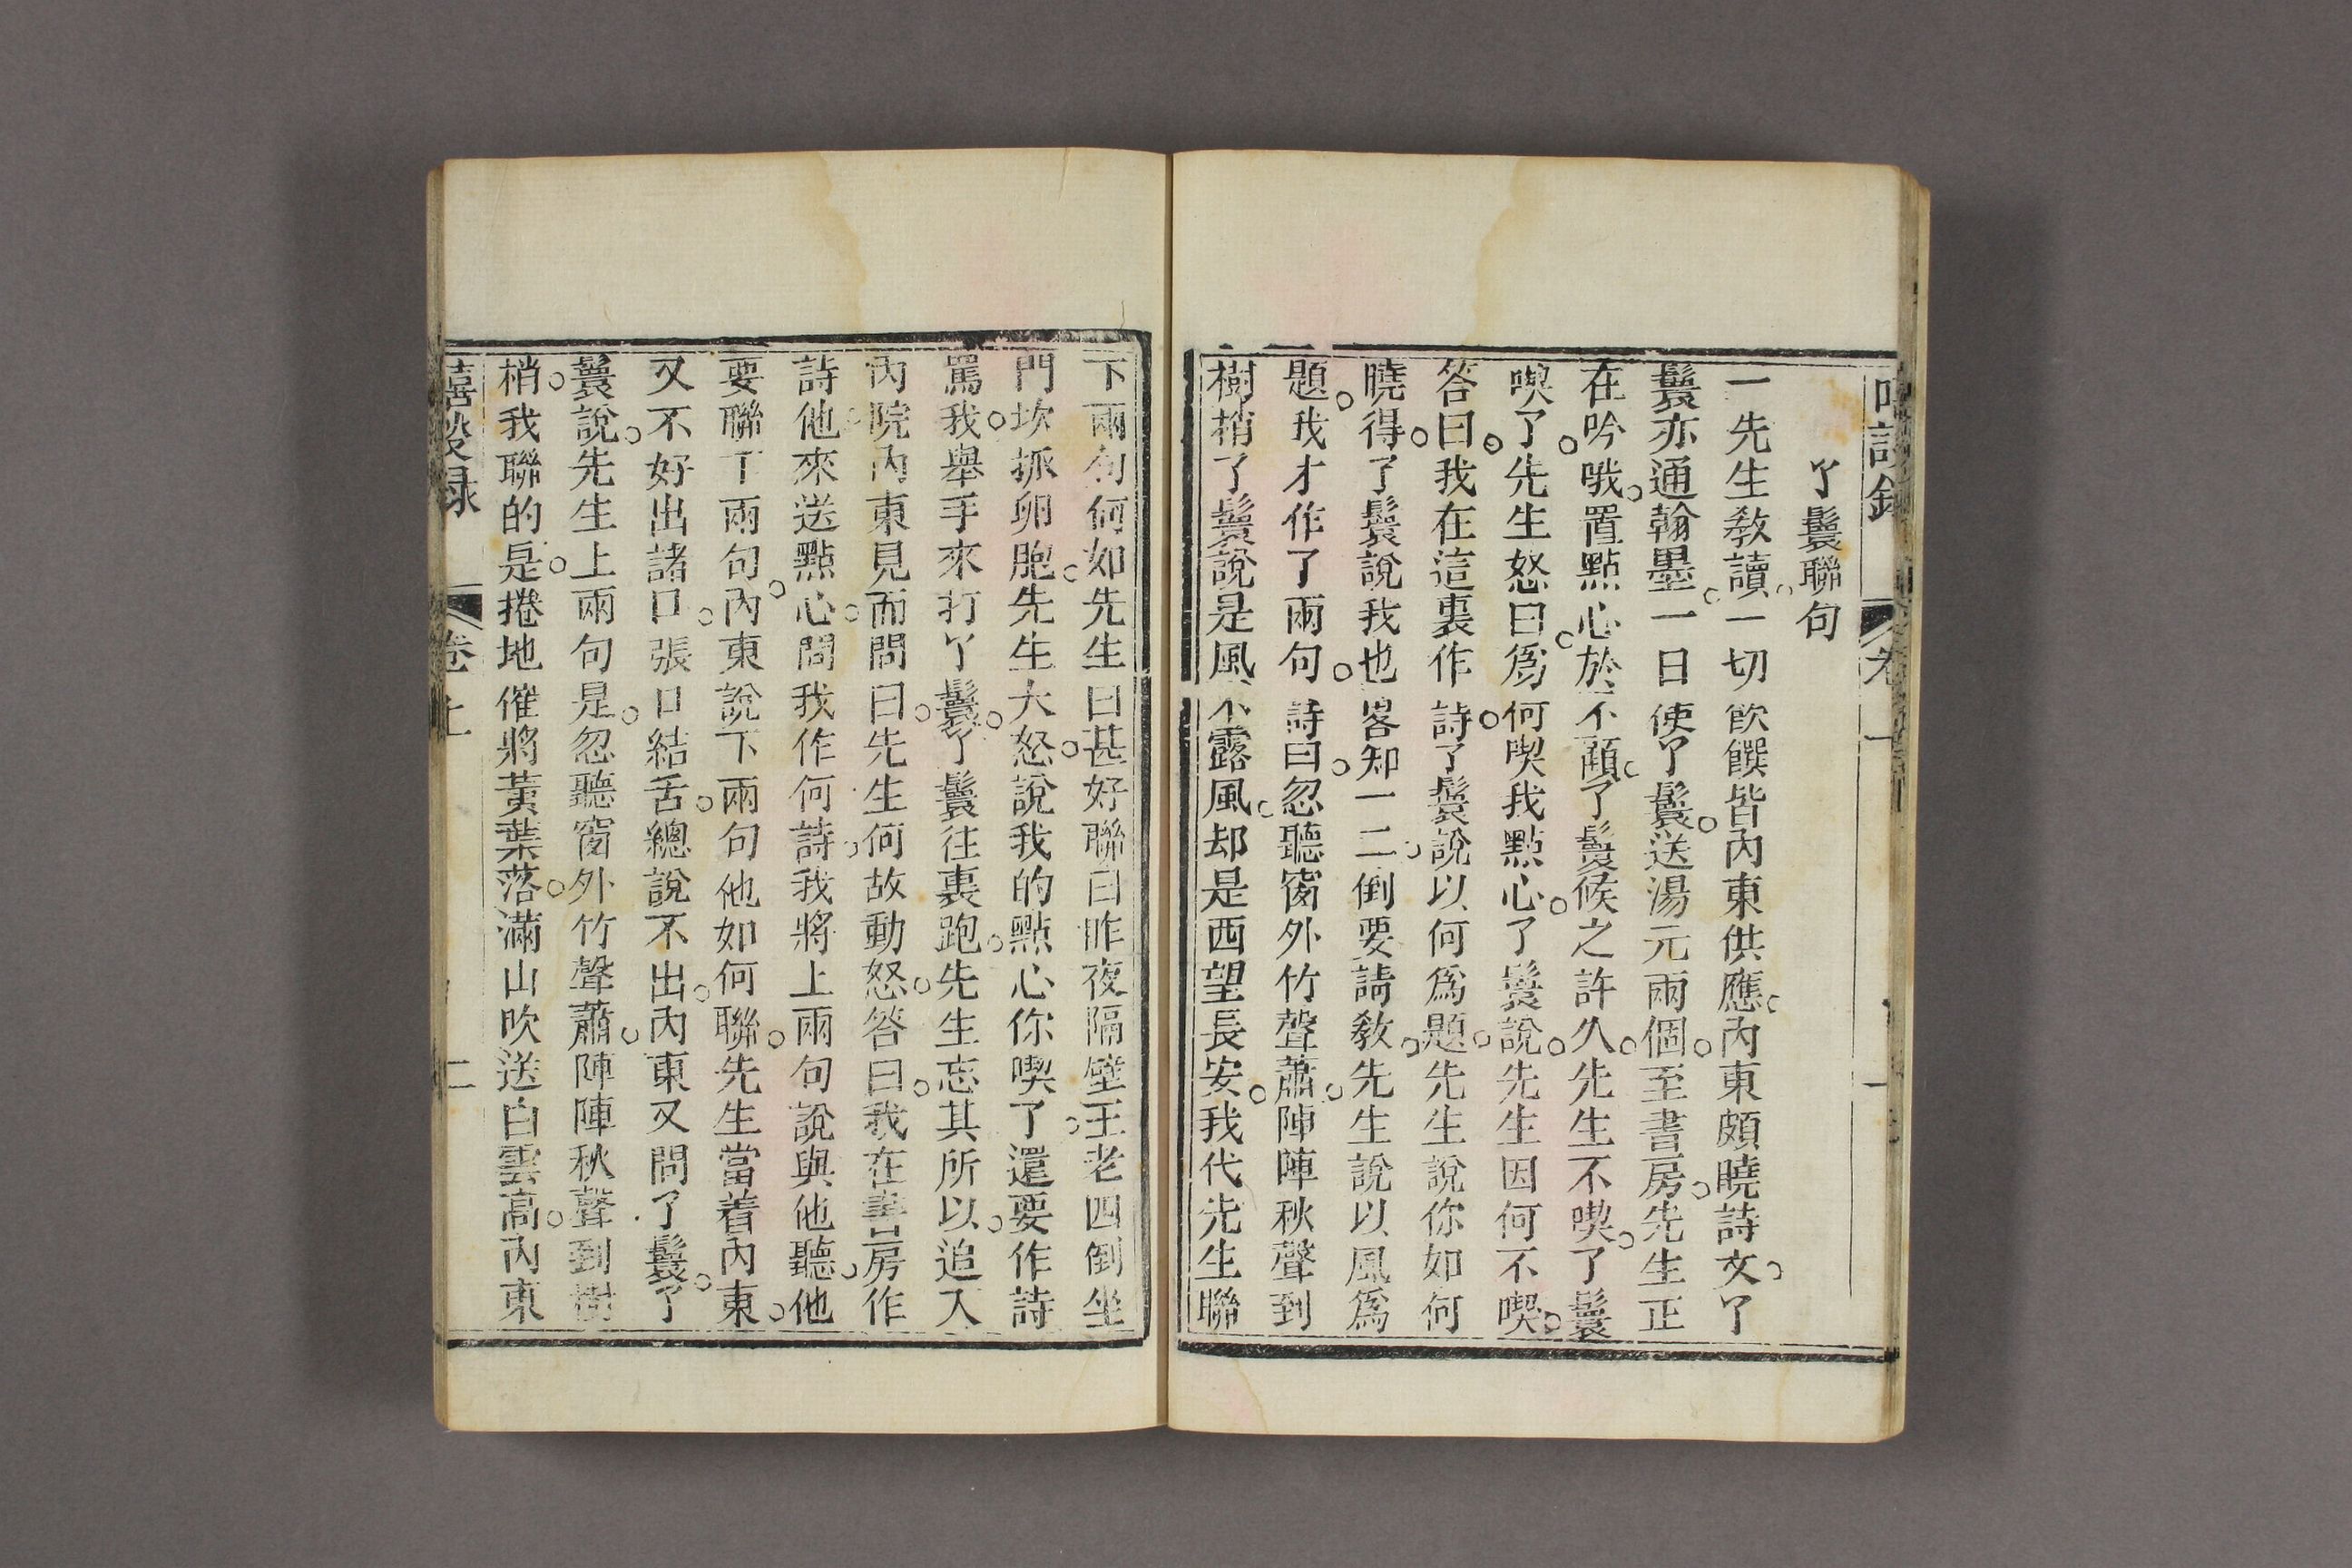 丫鬟聯句
一先生敎讀一切飮饌皆內東供應○內東頗曉詩文○丫
鬟亦通翰墨○一日使丫鬟○送湯元兩個○至書房○先生正
在吟哦○置點心於不顧○了鬟候之許久○先生不喫○了鬟
喫了○先生怒曰○爲何喫我點心○了鬟說○先生因何不喫○
答曰○我在這裏作詩○了鬟說以何爲題○先生說你如何
曉得○了鬟說我也畧知一二○倒要請敎○先生說以風爲
題○我才作了兩句○詩曰○忽聽窗外竹聲蕭○陣陣秋聲到
樹梢了鬟說是風不露風○却是西望長安○我代先生聯
下兩句何如先生曰甚好聯曰昨夜隔壁王老四倒坐
門坎抓卵胞○先生大怒○說我的點心你喫了○還要作詩
罵我○舉手來打丫鬟○了鬟往裏跑○先生忘其所以○追入
內院內東見而問曰○先生何故動怒○答曰○我在書房作
詩他來送點心○問我作何詩○我將上兩句說與他聽○他
要聯下兩句○內東說下兩句他如何聯○先生當着內東○
又不好出諸口○張口結舌○總說不出○內東又問了鬟○了
鬟說○先生上兩句是○忽聽窗外竹聲蕭○陣陣秋聲到樹
梢○我聯的是○捲地催將黃葉落○滿山吹送白雲高○內東
嘻談录
卷上
二